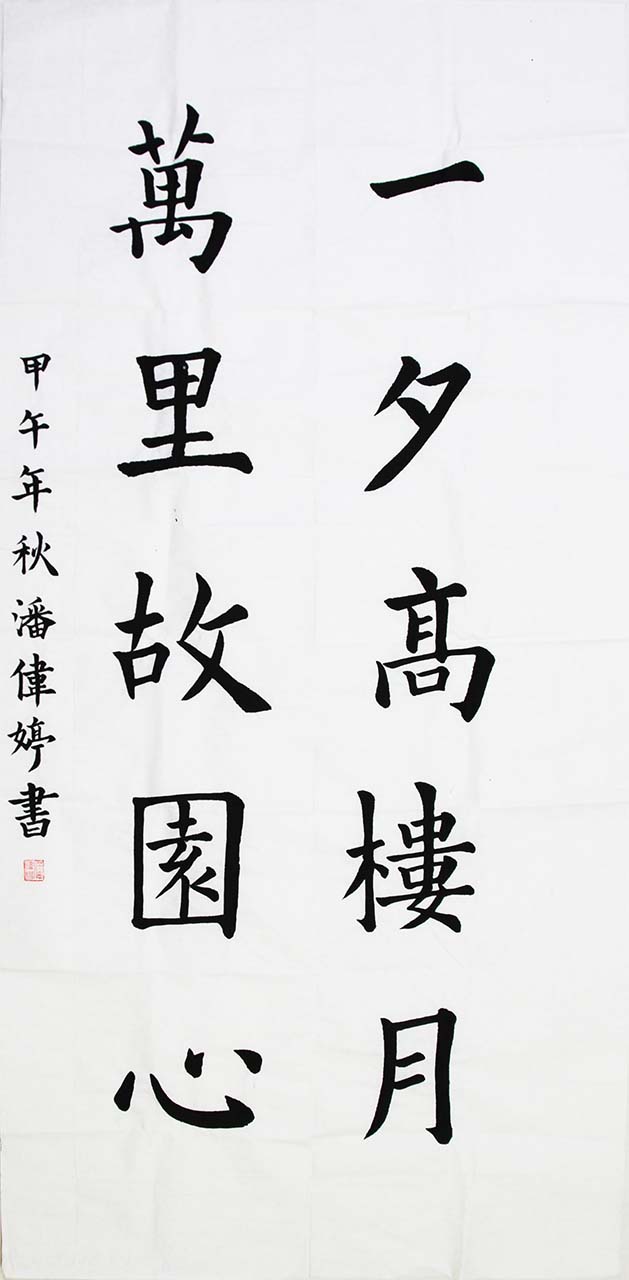 一夕髙樓月
萬里故園心
甲午年秋潘偉婷書